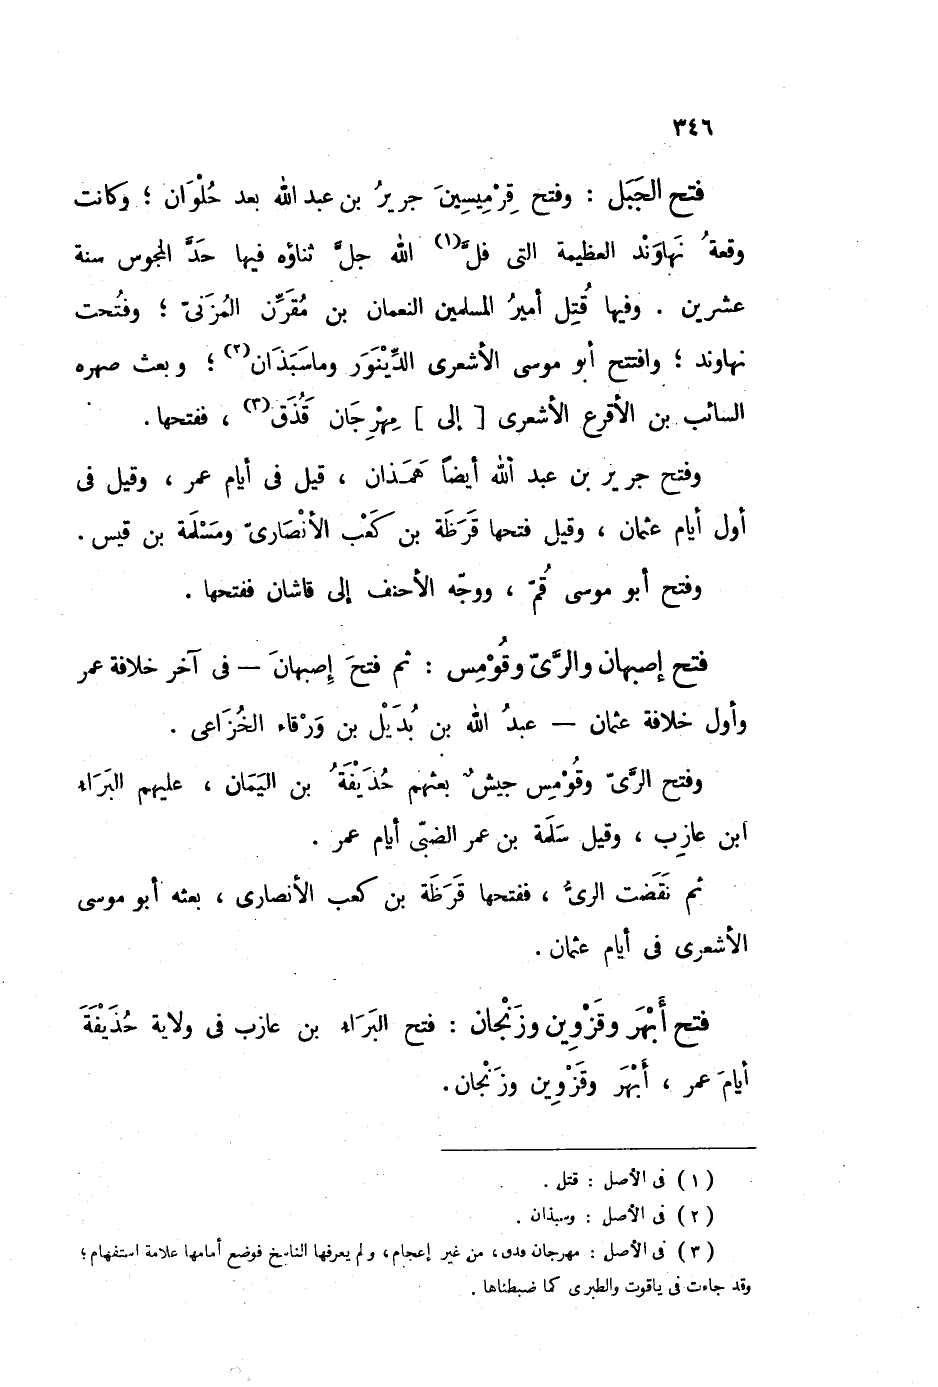 ٣٤٦
فتح الجَبَل : وفتح قِرْمِيسِينَ جريرُ بن عبد الله بعد حُلْوَان ؛ وكانت
وقعةُ نَهاوَنْد العظيمة التى فلَّ(١) الله جلَّ ثناؤه فيها حَدَّ المجوس سنة
عشرين . وفيها قُتِل أميرُ المسلمين النعمان بن مُقَرِّن المُزَنىّ ؛ وفُتحت
نهاوند ؛ وافتتح أبو موسى الأشعرى الدِّيْنَوَر وماسَبَذَان(٢) ؛ وبعث صهره
السائب بن الأقرع الأشعرى [ إلى ] مِهْرِجَان قَُذَق(٣) ، ففتحها .
وفتح جرير بن عبد الله أيضاً هَمَذان ، قيل فى أيام عمر ، وقيل فى
أول أيام عثمان ، وقيل فتحها قَرَظَة بن كَعْب الأنْصَارىّ ومَسْلَمة بن قيس .
وفتح أبو موسى قُمّ ، ووجّه الأحنف إلى قاشان ففتحها .
فتح إصبهان والرَّىّ وقُوْمِس : ثم فتحَ إِصبهانَ — فى آخر خلافة عمر
وأول خلافة عثمان — عبدُ الله بن بُدَيْل بن وَرْقاء الخُزَاعى .
وفتح الرَّىّ وقُوْمِس جيشٌ بعثهم حُذَيْفَةُ بن اليَمَان ، عليهم البَرَاء
ابن عازِب ، وقيل سَلَمة بن عمر الضبّى أيام عمر .
ثم نَقَضت الرىُّ ، ففتحها قَرَظَة بن كعب الأنصارى ، بعثه أبو موسى
الأشعرى فى أيام عثمان .
فتح أَبْهَر وقَزْوِين وزَنْجان : فتح البَرَاء بن عازب فى ولاية حُذَيفْةَ
أيامَ عمر ، أَبْهَر وقَزْوِين وزَنْجان .
( ١ ) فى الأصل : قتل .
( ٢ ) فى الأصل : وسبذان .
( ٣ ) فى الأصل : مهرجان فدق ، من غير إعجام ، ولم يعرفها الناسخ فوضع أمامها علامة استفهام ؛
وقد جاءت فى ياقوت والطبرى كما ضبطناها .